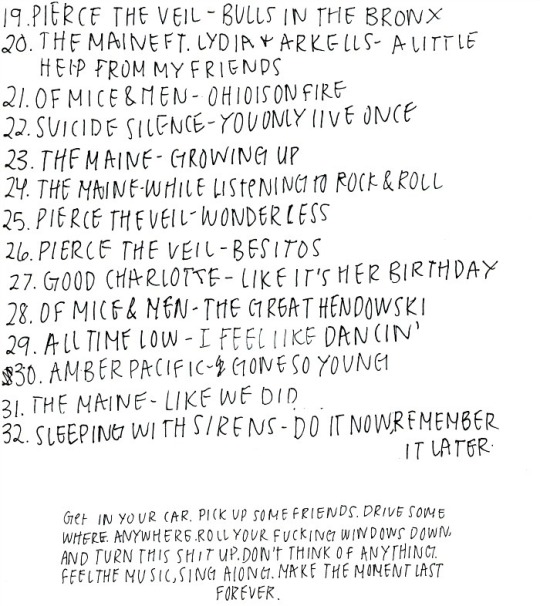 19. PIERCE THE VEIL - BULLS IN THE BRONX
20. THE MAINE FT. LYDIA + ARKELLS - A LITTLE
HELP FROM MY FRIENDS
21. OF MICE & MEN - OHIOISONFIRE
22. SUICIDE SILENCE - YOU ONLY LIVE ONCE
23. THE MAINE - GROWING UP
24. THE MAINE - WHILE LISTENING TO ROCK & ROLL
25. PIERCE THE VEIL - WONDERLESS
26. PIERCE THE VEIL - BESITOS
27. GOOD CHARLOTTE - LIKE IT'S HER BIRTHDAY
28. OF MICE & MEN - THE GREAT HENDOWSKI
29. ALL TIME LOW - I FEEL LIKE DANCIN'
30. AMBER PACIFIC - GONE SO YOUNG
31. THE MAINE - LIKE WE DID
32. SLEEPING WITH SIRENS - DO IT NOW, REMEMBER
IT LATER.
GET IN YOUR CAR. PICK UP SOME FRIENDS. DRIVE SOME
WHERE. ANYWHERE. ROLL YOUR FUCKING WINDOWS DOWN,
AND TURN THIS SHIT UP. DON'T THINK OF ANYTHING.
FEEL THE MUSIC, SING ALONG. MAKE THE MOMENT LAST
FOREVER.